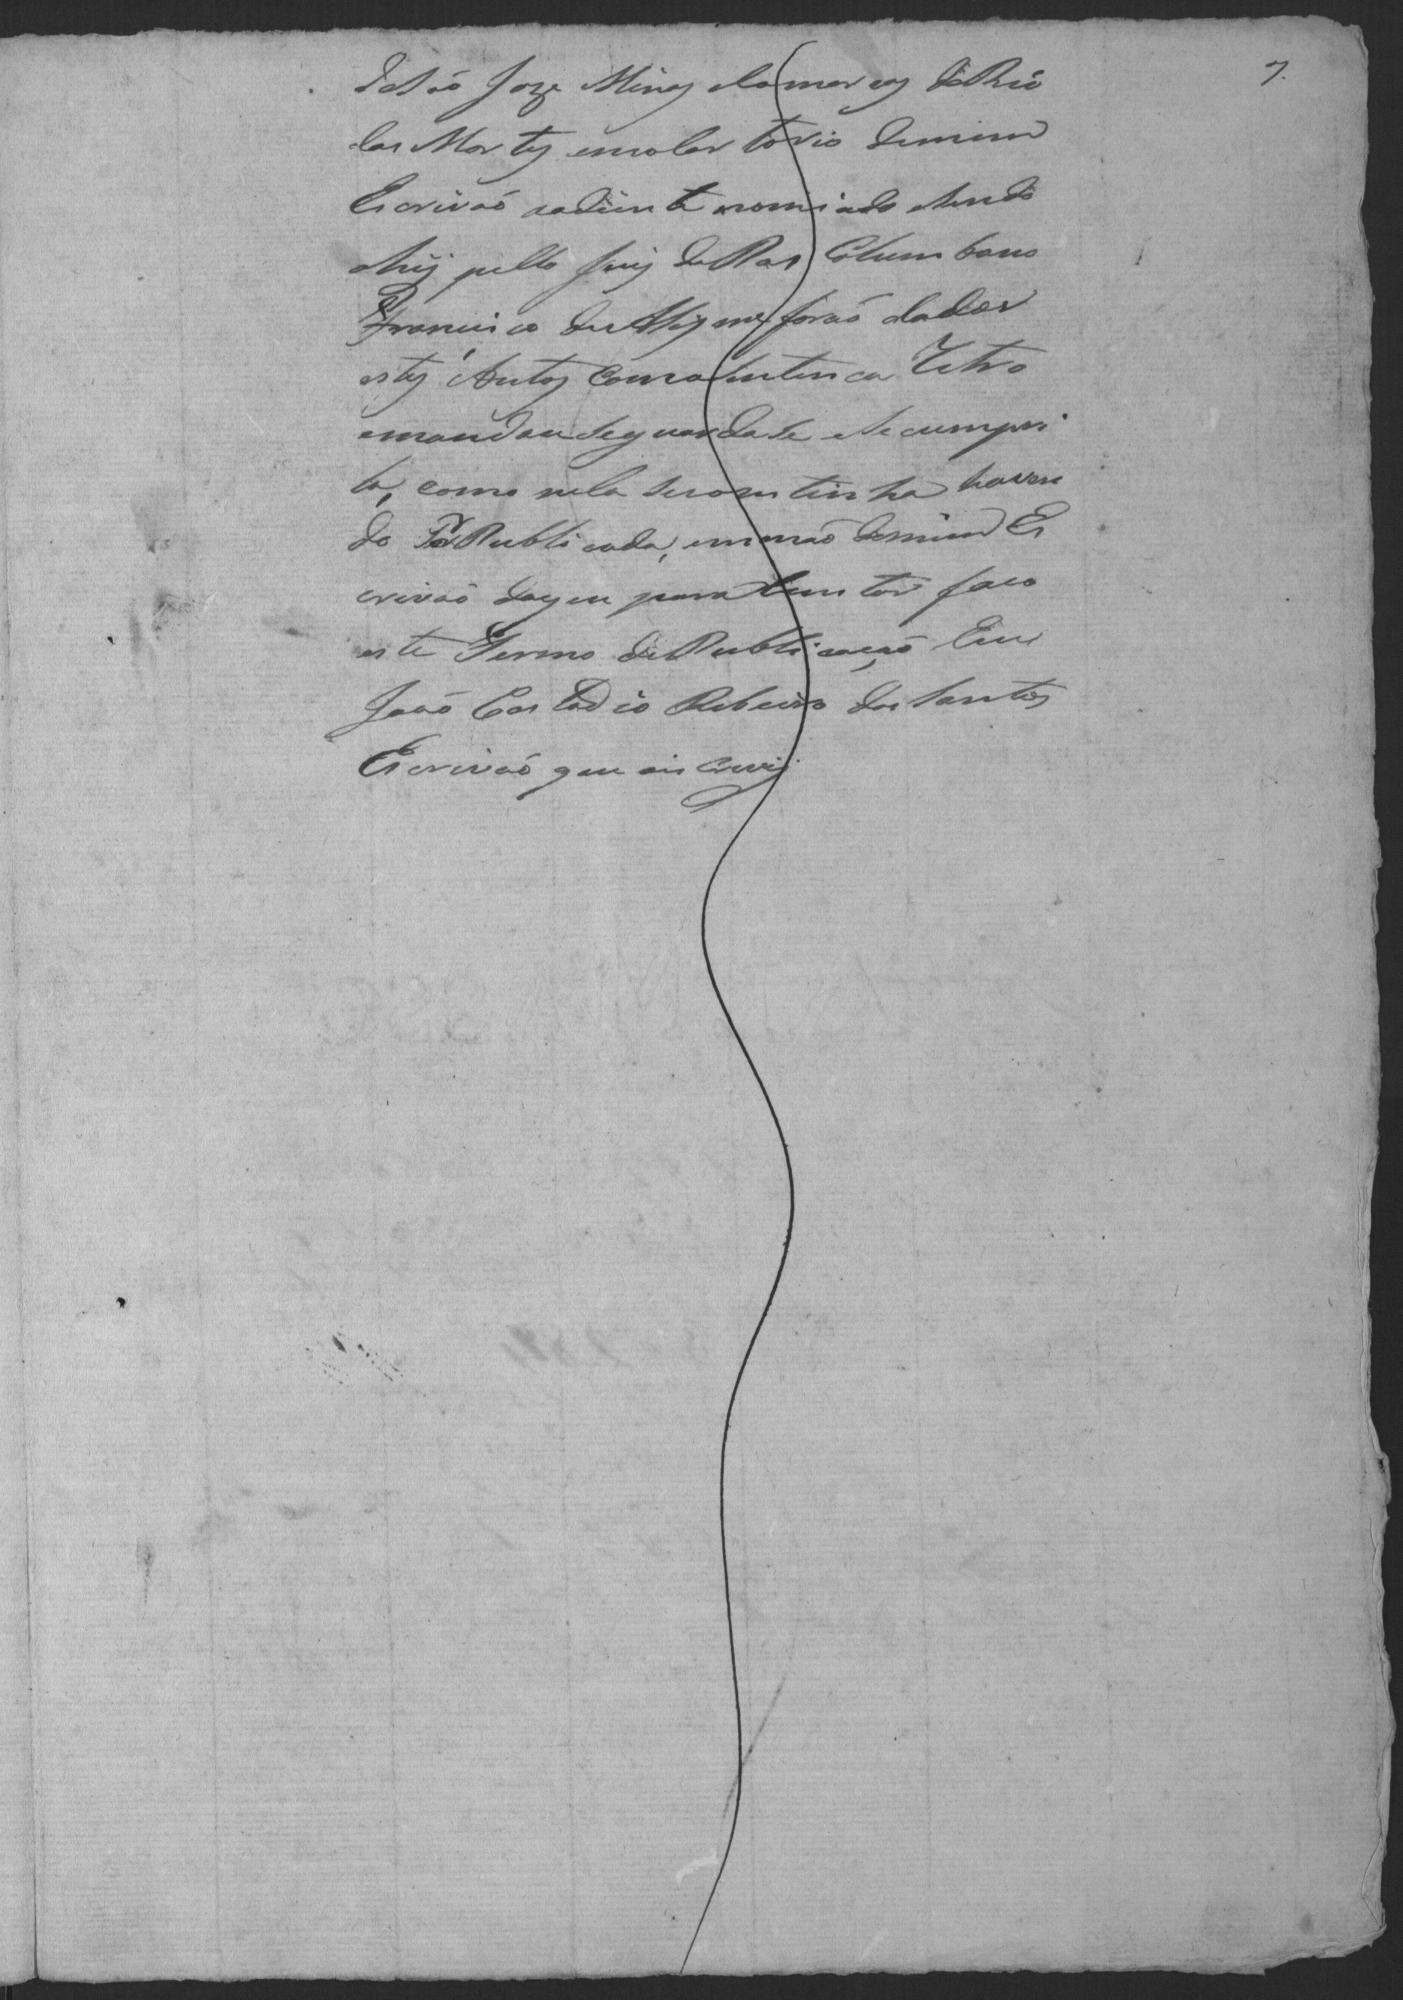 7.
de São Joze Minas Comarca do Rio
das Mortes em o Cartorio de mim
Escrivaõ adiente nomiado e sendo
ahij pello Juiz de Pas Columbano
Francisco de foraõ dados
estes Autos Com a Sentenca Retro
e mandou Se guardase e Se cumpri
se, como nela Se contin ha haven
do Por Publicada, em maõ de mim Es
crivaõ do que para Constar faco
este Termo de Publicaçaõ Eeu
Joaõ Custodio Ribeiro dos Santos
Escrivaõ que o is Crevij